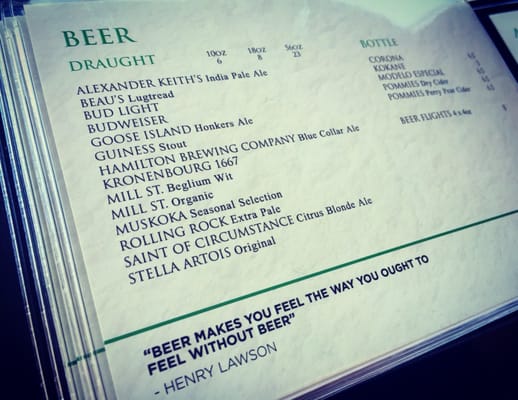 BEER
DRAUGHT 10OZ 18OZ 56OZ
6 8 23
ALEXANDER KEITH'S India Pale Ale
BEAU'S Lugtread
BUD LIGHT
BUDWEISER
GOOSE ISLAND Honkers Ale
GUINESS Stout
HAMILTON BREWING COMPANY Blue Collar Ale
KRONENBOURG 1667
MILL ST. Beglium Wit
MILL ST. Organic
MUSKOKA Seasonal Selection
ROLLING ROCK Extra Pale
SAINT OF CIRCUMSTANCE Citrus Blonde Ale
STELLA ARTOIS Original
BOTTLE
CORONA
KOKANE
MODELO ESPECIAL
POMMIES Dry Cider
POMMIES Perry Pear Cider
BEER FLIGHTS 4 x 4oz
"BEER MAKES YOU FEEL THE WAY YOU OUGHT TO
FEEL WITHOUT BEER"
- HENRY LAWSON